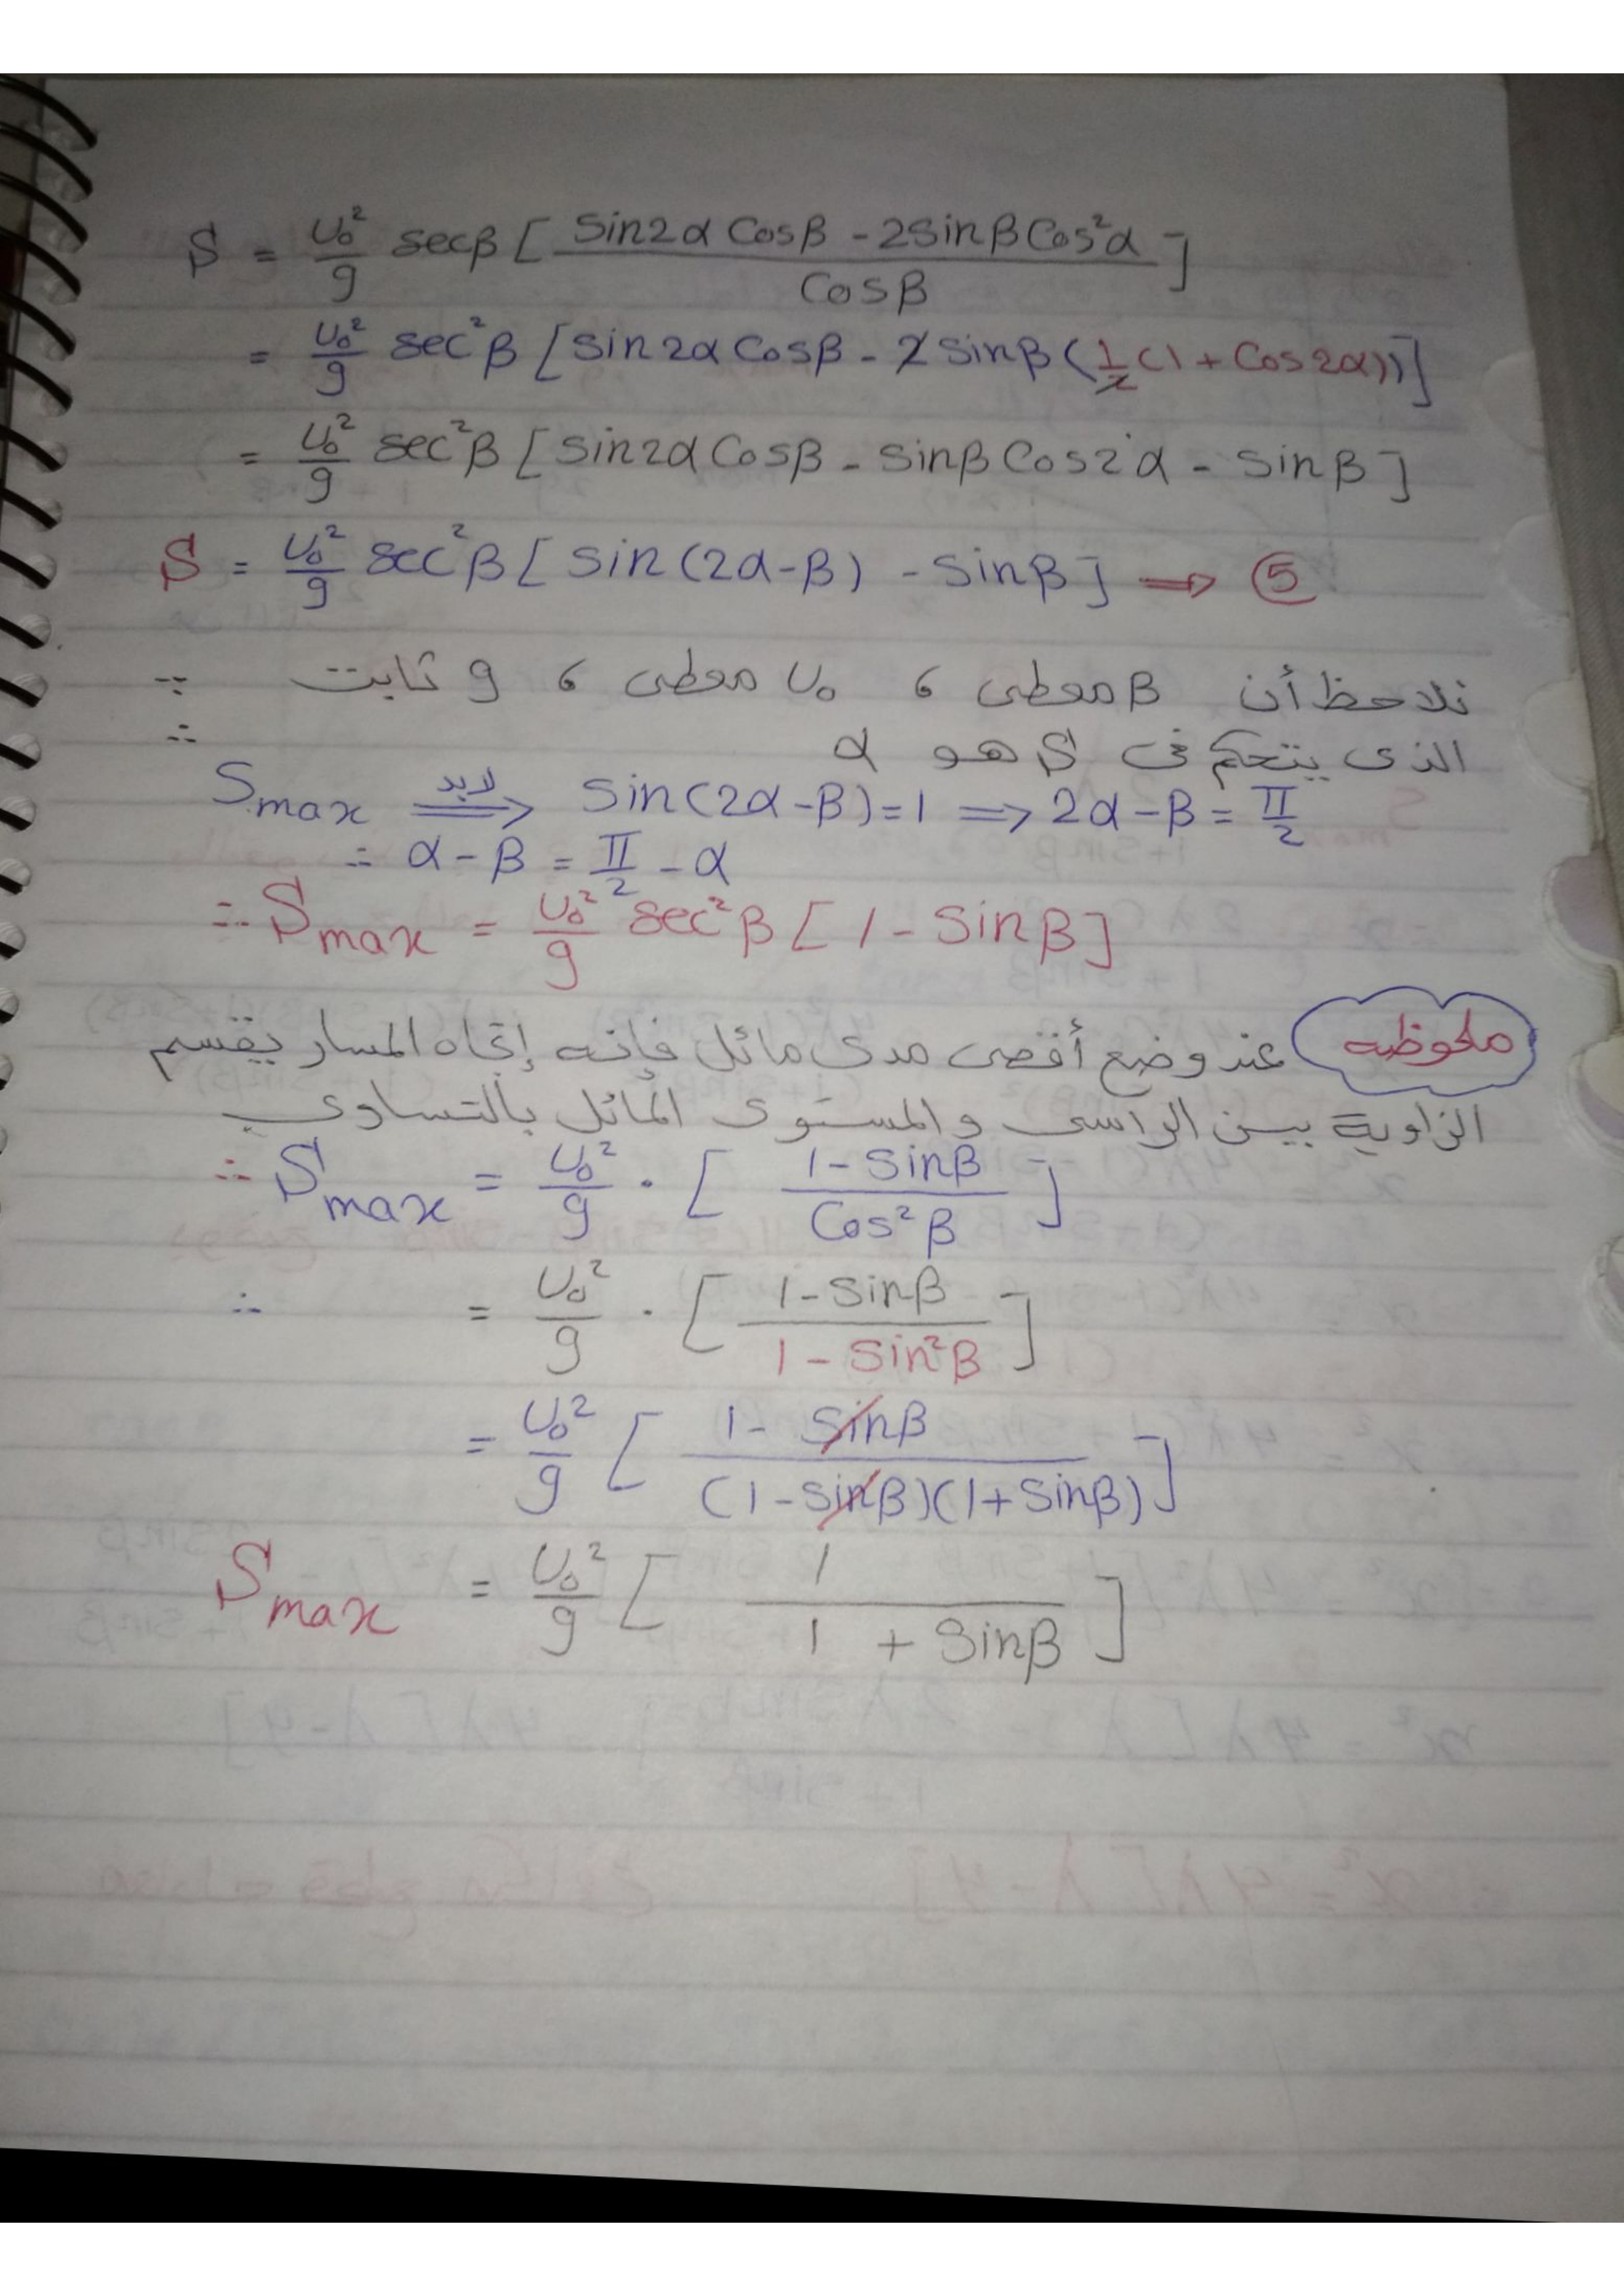 S = U₀²/g secβ [ (Sin2α Cosβ - 2Sinβ Cos²α) / Cosβ ]
= U₀²/g sec²β [Sin2α Cosβ - 2 Sinβ (1/2 (1 + Cos2α))]
= U₀²/g sec²β [Sin2α Cosβ - Sinβ Cos2α - Sinβ]
S = U₀²/g sec²β [ Sin(2α-β) - Sinβ ] ⇒ ⑤
∵ نلاحظ أن β معطى ، U₀ معطى ، g ثابت
∴ الذى يتحكم فى S هو α
Smax لابد ⇒ Sin(2α-β)=1 ⇒ 2α-β = π/2
∴ α-β = π/2 - α
∴ Smax = U₀²/g sec²β [ 1 - Sinβ ]
ملحوظه عند وضع أقصى مدى مائل فإنه إتجاه المسار يقسم
الزاوية بين الراسى والمستوى المائل بالتساوى
∴ Smax = U₀²/g · [ (1-Sinβ) / Cos²β ]
∴ = U₀²/g · [ (1-Sinβ) / (1 - Sin²β) ]
= U₀²/g [ (1 - Sinβ) / ((1-Sinβ)(1+Sinβ)) ]
Smax = U₀²/g [ 1 / (1 + Sinβ) ]